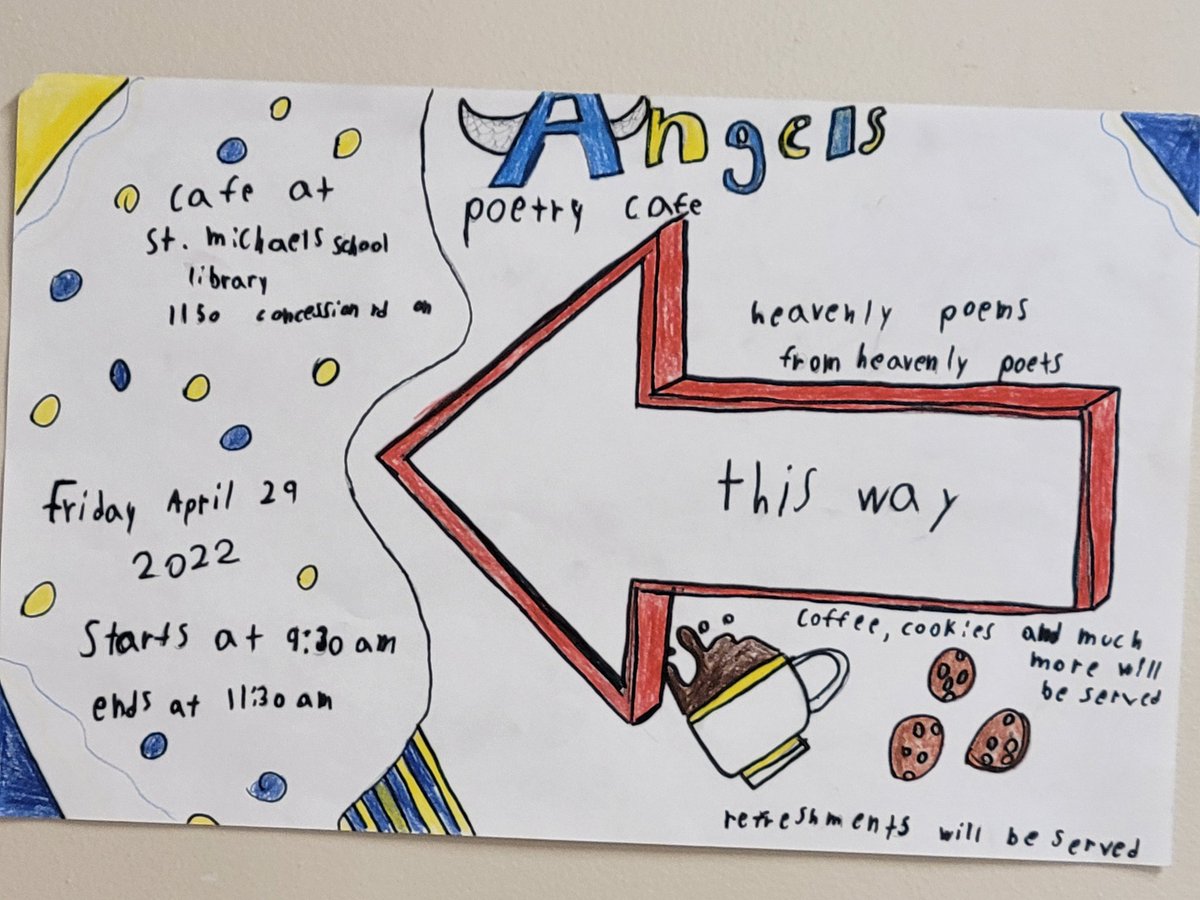 Angels
poetry cafe
cafe at
st. michaels school
library
1150 concession rd on
heavenly poems
from heavenly poets
this way
Friday April 29
2022
Starts at 9:30 am
ends at 11:30 am
coffee, cookies and much
more will
be served
refreshments will be served